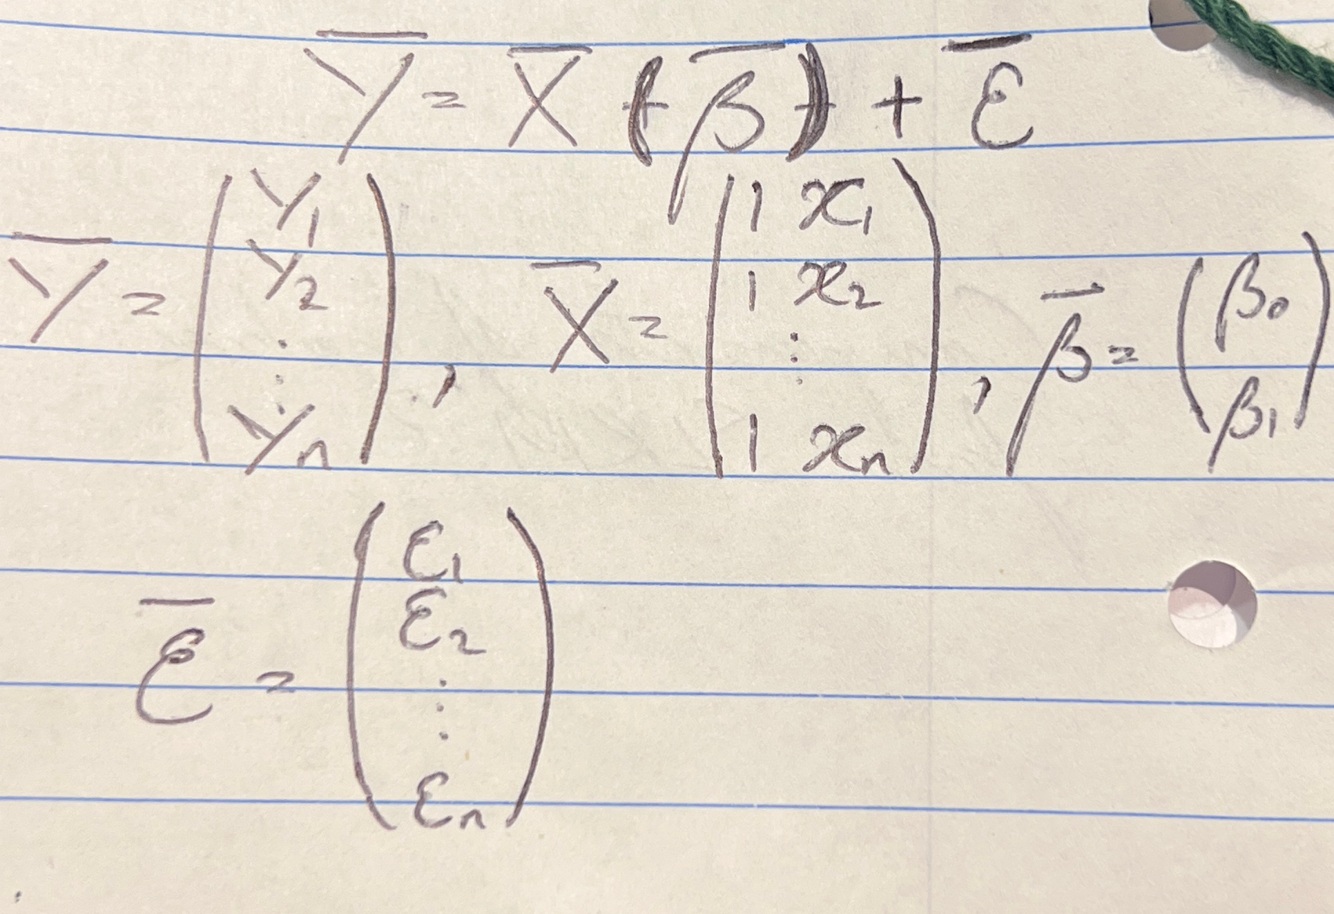 Y̅ = X̅ (β̅) + ε̅
Y̅ = (Y₁ Y₂ ⋮ Yₙ), X̅ = (1 x₁ 1 x₂ ⋮ 1 xₙ), β̅ = (β₀ β₁)
ε̅ = (ε₁ ε₂ ⋮ εₙ)